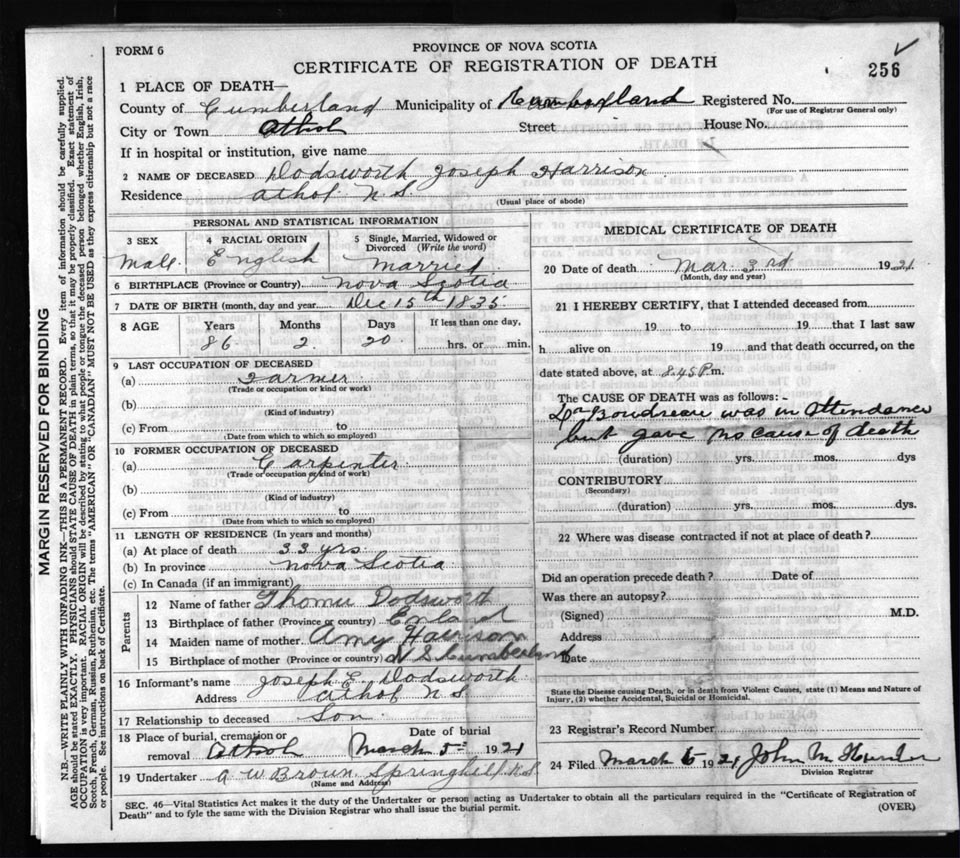 FORM 6
PROVINCE OF NOVA SCOTIA
CERTIFICATE OF REGISTRATION OF DEATH
256
1 PLACE OF DEATH—
County of Cumberland Municipality of Cumberland Registered No.
(For use of Registrar General only)
City or Town Athol Street House No.
If in hospital or institution, give name
2 NAME OF DECEASED Dodsworth Joseph Harrison
Residence Athol N.S.
(Usual place of abode)
PERSONAL AND STATISTICAL INFORMATION
3 SEX 4 RACIAL ORIGIN 5 Single, Married, Widowed or Divorced (Write the word)
Male English Married
6 BIRTHPLACE (Province or Country) Nova Scotia
7 DATE OF BIRTH (month, day and year) Dec 15th 1835
8 AGE Years Months Days If less than one day,
86 2 20 hrs. or min.
9 LAST OCCUPATION OF DECEASED
(a) Farmer
(Trade or occupation or kind of work)
(b)
(Kind of industry)
(c) From to
(Date from which to which so employed)
10 FORMER OCCUPATION OF DECEASED
(a) Carpinter
(Trade or occupation or kind of work)
(b)
(Kind of industry)
(c) From to
(Date from which to which so employed)
11 LENGTH OF RESIDENCE (In years and months)
(a) At place of death 33 yrs.
(b) In province Nova Scotia
(c) In Canada (if an immigrant)
Parents
12 Name of father Dodsworth
13 Birthplace of father (Province or country)
14 Maiden name of mother Amy Harrison
15 Birthplace of mother (Province or country) N S Cumberland
16 Informant's name Joseph E. Dodsworth
Address Athol N.S.
17 Relationship to deceased Son
18 Place of burial, cremation or removal Athol Date of burial March 5th 1921
19 Undertaker A. W Brown Springhill N.S.
(Name and Address)
MEDICAL CERTIFICATE OF DEATH
20 Date of death Mar. 3rd 1921
(Month, day and year)
21 I HEREBY CERTIFY, that I attended deceased from
19 to 19 that I last saw
h alive on 19 and that death occurred, on the
date stated above, at 8.45 P.m.
The CAUSE OF DEATH was as follows:-
Dr Boudreau was in attendance
but gave no cause of death
(duration) yrs. mos. dys
CONTRIBUTORY
(Secondary)
(duration) yrs. mos. dys.
22 Where was disease contracted if not at place of death?
Did an operation precede death? Date of
Was there an autopsy?
(Signed) M.D.
Address
Date
State the Disease causing Death, or in death from Violent Causes, state (1) Means and Nature of
Injury, (2) whether Accidental, Suicidal or Homicidal.
23 Registrar's Record Number
24 Filed March 6 1921 John M
Division Registrar
SEC. 46—Vital Statistics Act makes it the duty of the Undertaker or person acting as Undertaker to obtain all the particulars required in the "Certificate of Registration of
Death" and to fyle the same with the Division Registrar who shall issue the burial permit.
(OVER)
MARGIN RESERVED FOR BINDING
N.B.—WRITE PLAINLY WITH UNFADING INK—THIS IS A PERMANENT RECORD. Every item of information should be carefully supplied.
AGE should be stated EXACTLY. PHYSICIANS should STATE CAUSE OF DEATH in plain terms, so that it may be properly classified. Exact statement of
OCCUPATION is very important. RACIAL ORIGIN will be described by stating to what people or tongue the deceased person belonged whether English, Irish,
Scotch, French, German, Russian, Ruthenian, etc. The terms "AMERICAN" OR "CANADIAN" MUST NOT BE USED as they express citizenship but not a race
or people. See instructions on back of Certificate.